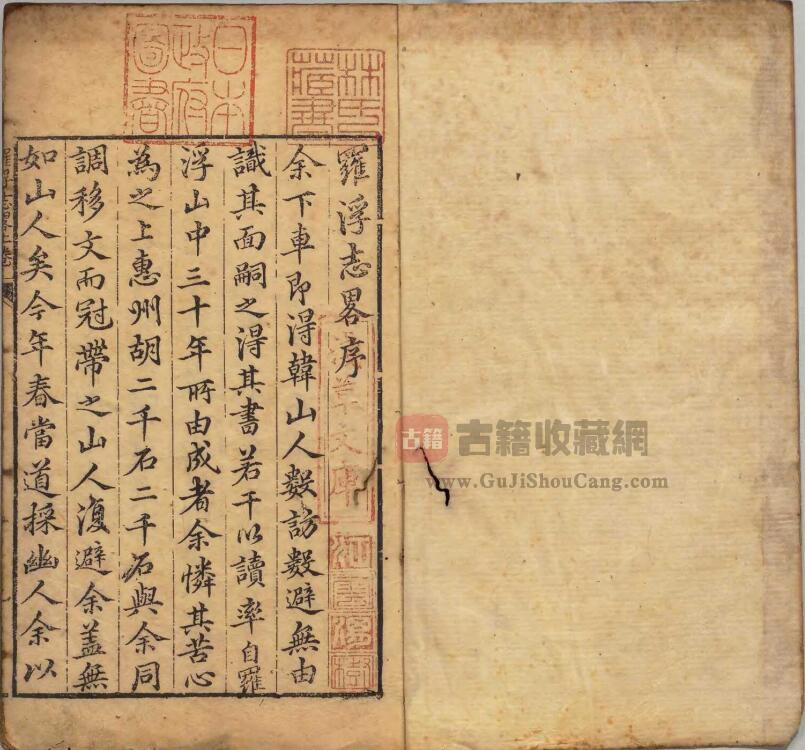 羅浮志畧序
余下車即得韓山人數訪數避無由
識其面嗣之得其書若干以讀率自羅
浮山中三十年所由成者余憐其苦心
為之上惠州胡二千石二千石與余同
調移文而冠帶之山人復避余盖無
如山人矣今年春當道採幽人余以
林氏
藏書
日本
政府
圖書
古籍
古籍收藏網
www.GuJiShouCang.com